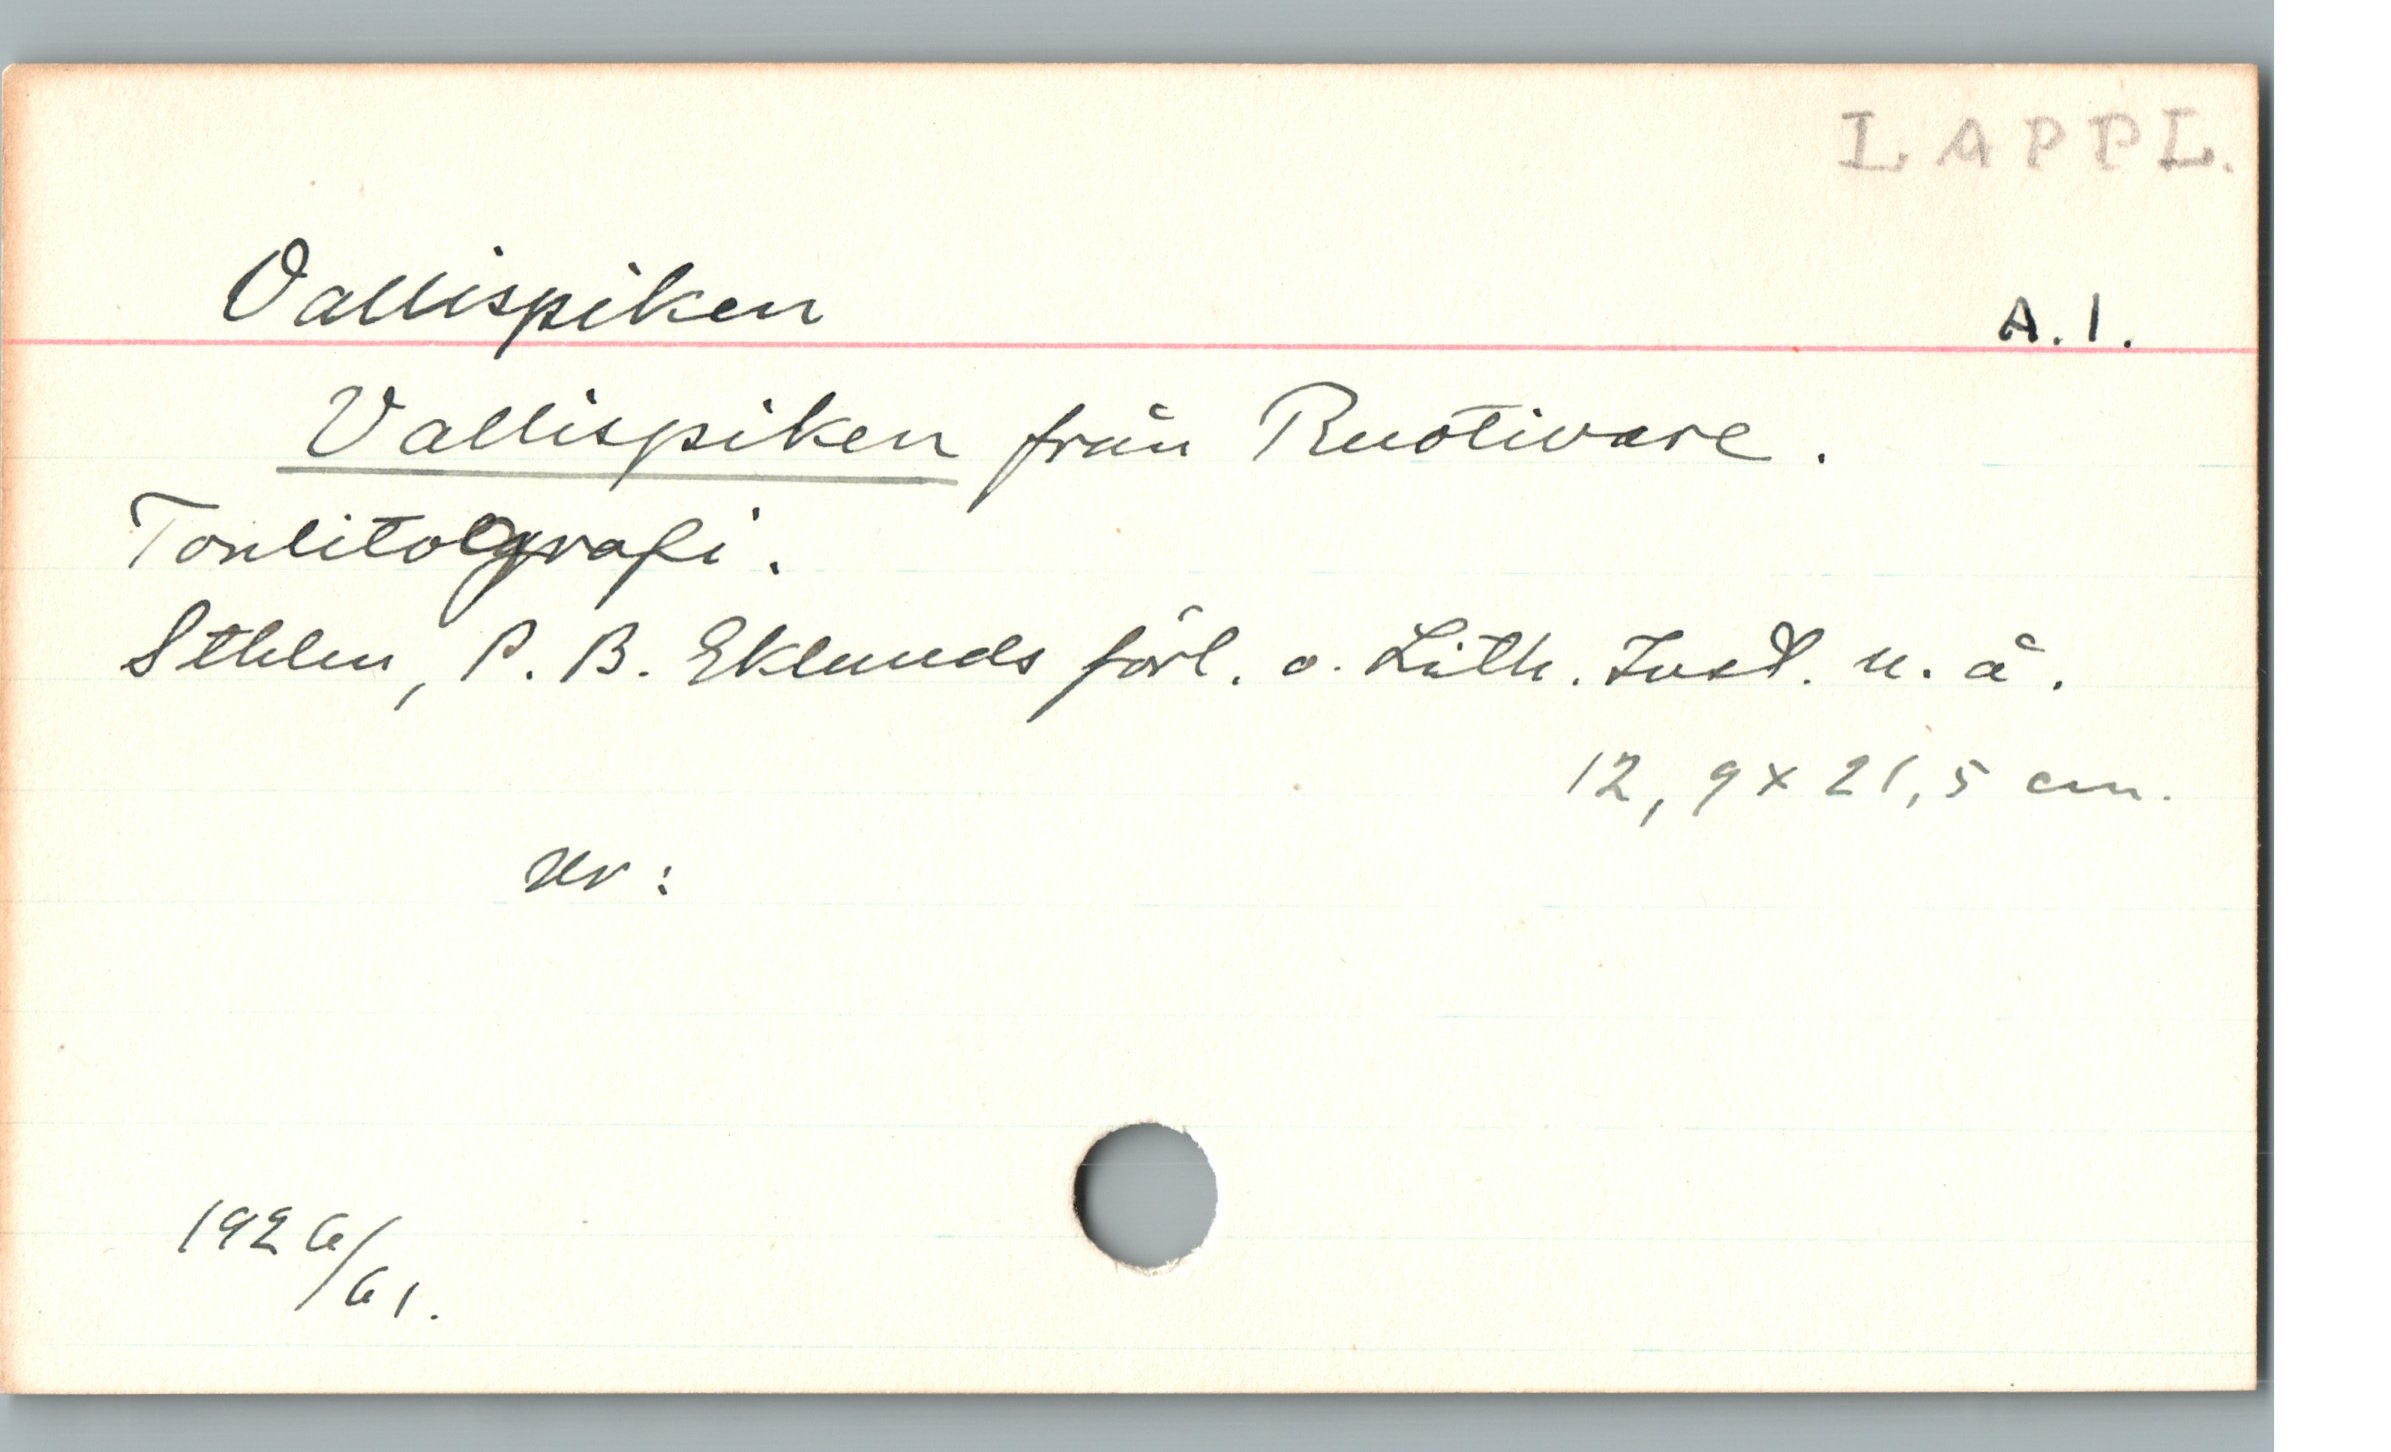 LAPPL.
Vallispiken A.1.
Vallispiken från Ruotivare.
Tonlitografi.
Sthlm, P. B. Eklunds förl. o. Lith. Inst. u. å.
12,9x21,5 cm.
ur:
1926/61.